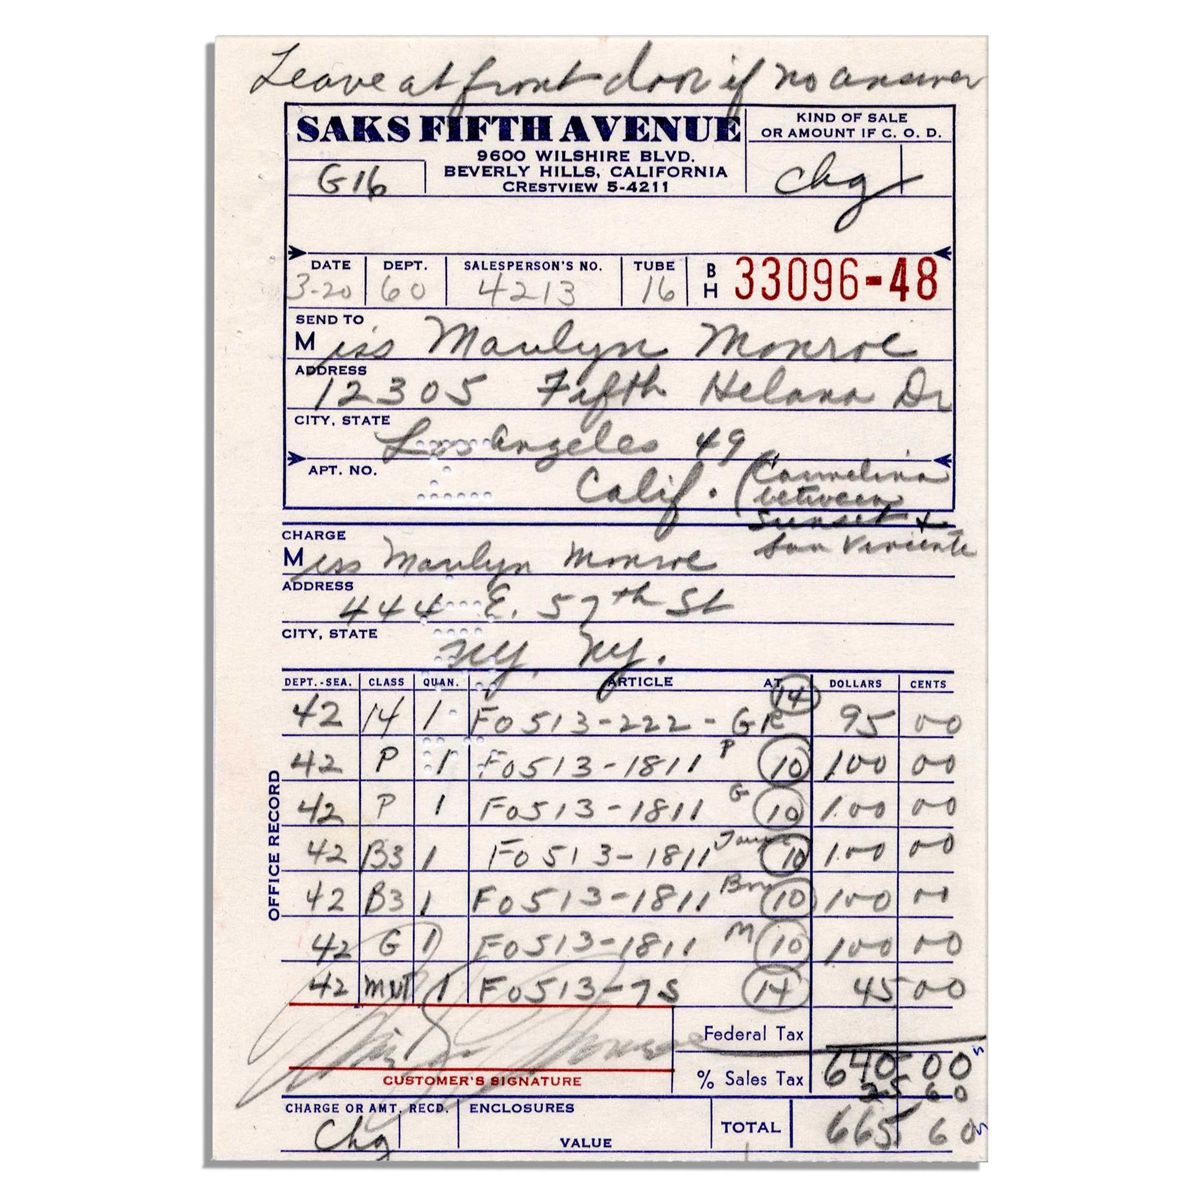 Leave at front door if no answer
SAKS FIFTH AVENUE
9600 WILSHIRE BLVD.
BEVERLY HILLS, CALIFORNIA
CRESTVIEW 5-4211
G16
KIND OF SALE
OR AMOUNT IF C. O. D.
chg
DATE DEPT. SALESPERSON'S NO. TUBE B H 33096-48
3-20 60 4213 16
SEND TO
Miss Marilyn Monroe
ADDRESS
12305 Fifth Helana Dr
CITY, STATE
Los Angeles 49
APT. NO.
Calif. (Carmelina
between
Sunset +
San Vincente
CHARGE
Miss Marilyn Monroe
ADDRESS
444 E. 57th St
CITY, STATE
NY, NY.
DEPT.-SEA. CLASS QUAN. ARTICLE AT DOLLARS CENTS
42 14 1 F0513-222-GR 14 95 00
42 P 1 F0513-1811 P 10 100 00
42 P 1 F0513-1811 G 10 100 00
42 B3 1 F0513-1811 10 100 00
42 B3 1 F0513-1811 10 100 00
42 G 1 F0513-1811 M 10 100 00
42 mut 1 F0513-7S 14 45 00
OFFICE RECORD
Federal Tax
Monroe
% Sales Tax 640 00
25 60
CUSTOMER'S SIGNATURE
CHARGE OR AMT. RECD. ENCLOSURES
Chg
VALUE
TOTAL 665 60